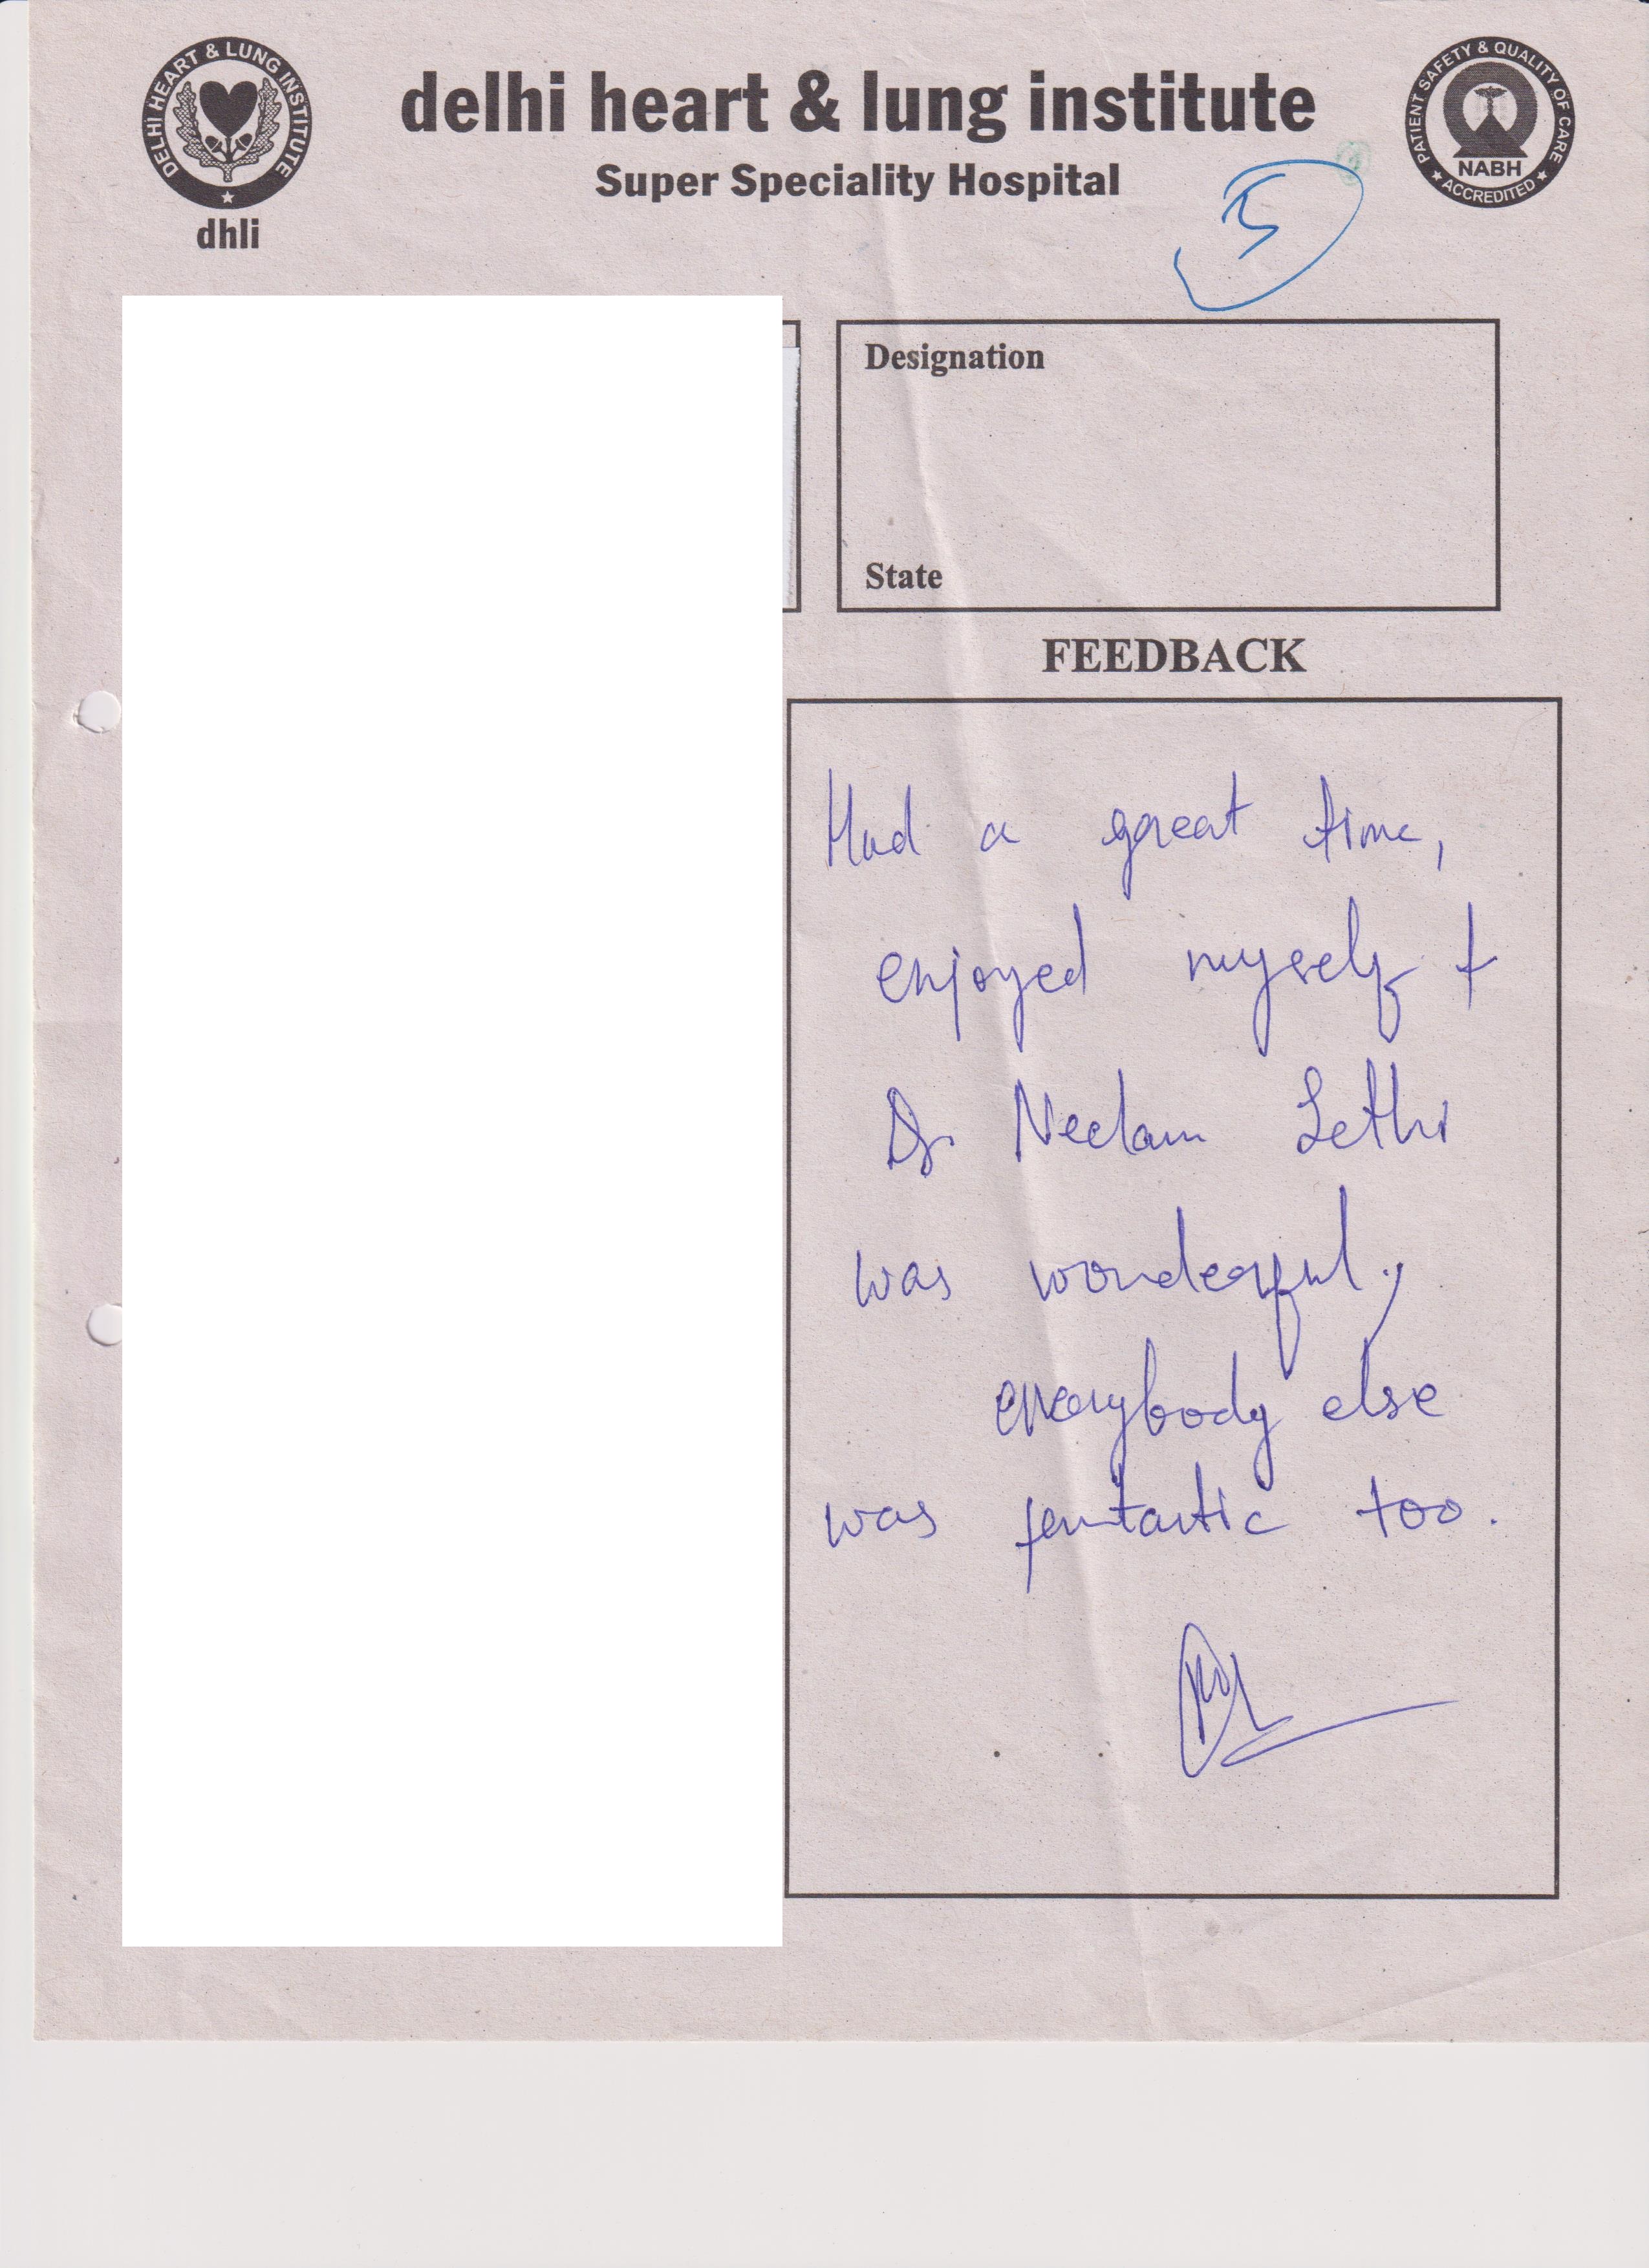 DELHI HEART & LUNG INSTITUTE
dhli
delhi heart & lung institute
Super Speciality Hospital
PATIENT SAFETY & QUALITY OF CARE
NABH
ACCREDITED
5
Designation
State
FEEDBACK
Had a great time,
enjoyed myself &
Dr. Neelam Sethi
was wonderful,
everybody else
was fantastic too.